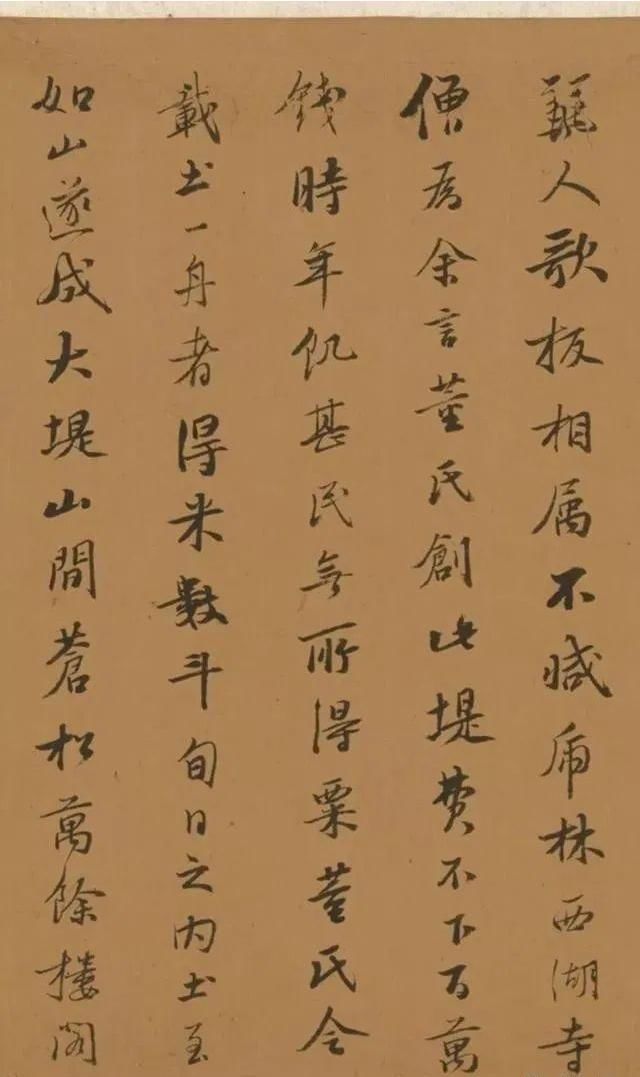 麗人歌板相属不減虎林西湖寺
僧為余言董氏創此堤費不下百萬
錢時年飢甚民無所得粟董氏令
載土一舟者得米數斗旬日之内土至
如山遂成大堤山間蒼松萬餘樓閣